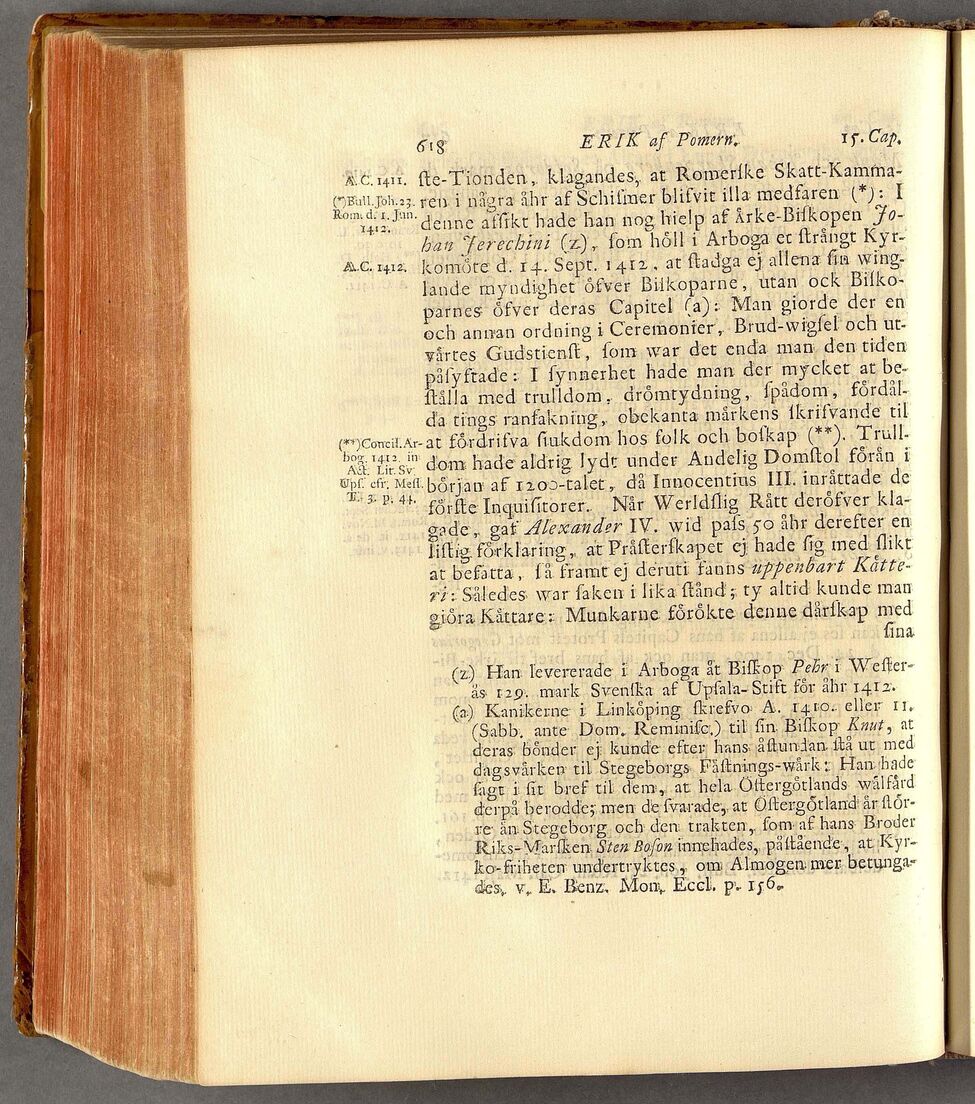 618 ERIK af Pomern. 15. Cap.
A.C. 1411.
(*) Bull. Joh. 23.
Rom. d. 1. Jun.
1412.
A.C. 1412.
(**) Concil. Ar-
bog. 1412. in
Act. Lit. Sv.
Upſ. cfr. Meſſ.
T. 3. p. 44.
ſte-Tionden, klagandes, at Romerſke Skatt-Kamma-
ren i några åhr af Schiſmer blifvit illa medfaren (*): I
denne afſikt hade han nog hielp af Årke-Biſkopen Jo-
han Jerechini (z), ſom höll i Arboga et ſtrångt Kyr-
komöte d. 14. Sept. 1412, at ſtadga ej allena ſin wing-
lande myndighet öfver Biſkoparne, utan ock Biſko-
parnes öfver deras Capitel (a): Man giorde der en
och annan ordning i Ceremonier, Brud-wigſel och ut-
vårtes Gudstienſt, ſom war det enda man den tiden
påſyftade: I ſynnerhet hade man der mycket at be-
ſtålla med trulldom, drömtydning, ſpådom, fördål-
da tings ranſakning, obekanta mårkens ſkrifvande til
at fördrifva ſiukdom hos folk och boſkap (**). Trull-
dom hade aldrig lydt under Andelig Domſtol förån i
början af 1200-talet, då Innocentius III. inråttade de
förſte Inquiſitorer. Når Werldſlig Rått deröfver kla-
gade, gaf Alexander IV. wid paſs 50 åhr derefter en
liſtig förklaring, at Pråſterſkapet ej hade ſig med ſlikt
at befatta, ſå framt ej deruti fanns uppenbart Kåtte-
ri: Således war ſaken i lika ſtånd; ty altid kunde man
giöra Kåttare: Munkarne förökte denne dårſkap med
ſina
(z) Han levererade i Arboga åt Biſkop Pehr i Weſter-
ås 129. mark Svenſka af Upſala-Stift för åhr 1412.
(a) Kanikerne i Linköping ſkrefvo A. 1410. eller 11.
(Sabb. ante Dom. Reminiſc.) til ſin Biſkop Knut, at
deras bönder ej kunde efter hans åſtundan ſtå ut med
dagsvårken til Stegeborgs Fåſtnings-wårk: Han hade
ſagt i ſit bref til dem, at hela Öſtergötlands wålfård
derpå berodde; men de ſvarade, at Öſtergötland år ſtör-
re ån Stegeborg och den trakten, ſom af hans Broder
Riks-Marſken Sten Boſon innehades, påſtående, at Kyr-
ko-friheten undertryktes, om Almogen mer betunga-
des. v. E. Benz. Mon. Eccl. p. 156.